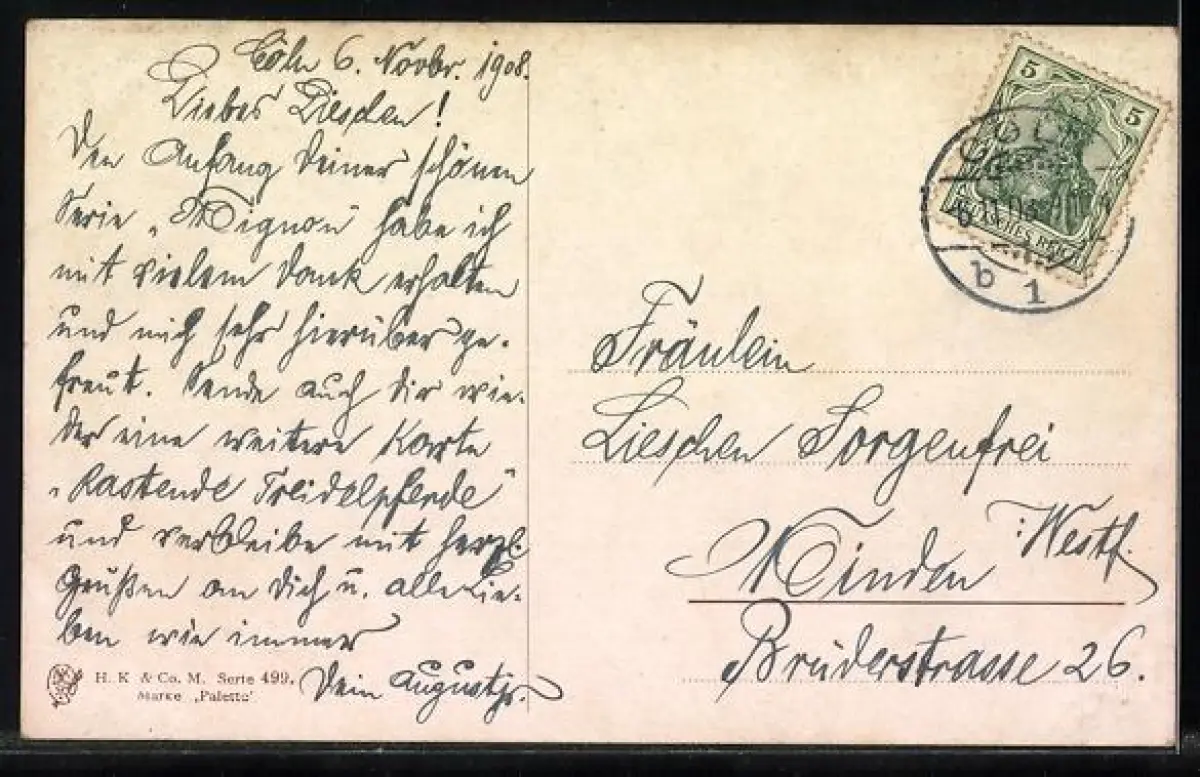 Cöln 6. Novbr. 1908.
Liebes Lieschen!
Den Anfang Deiner schönen
Serie „Mignon" habe ich
mit vielem Dank erhalten
und mich sehr hierüber ge-
freut. Sende auch Dir wie-
der eine weitere Karte
„Rastende Treidelpferde"
und verbleibe mit herzl.
Grüßen an Dich u. alle Lie-
ben wie immer
Dein August
H. K & Co. M. Serie 499.
Marke „Palette"
5 5
CÖLN
b 1
Fräulein
Lieschen Sorgenfrei
Minden :Westf.
Brüderstrasse 26.